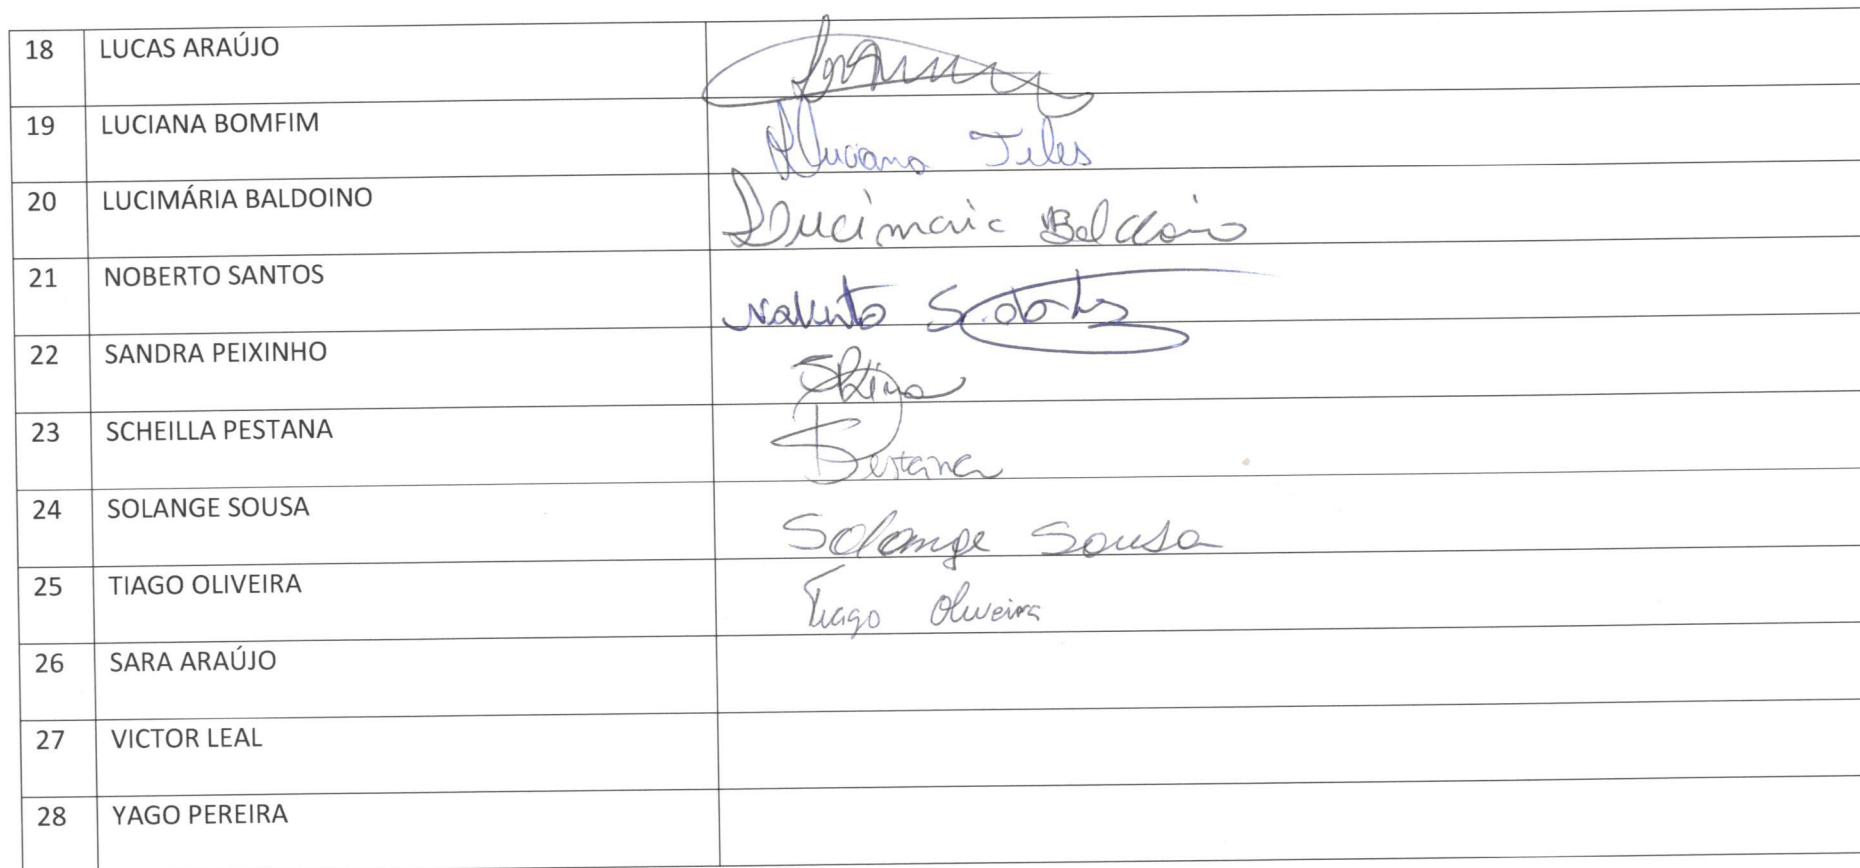 18 LUCAS ARAÚJO
19 LUCIANA BOMFIM Luciana Teles
20 LUCIMÁRIA BALDOINO Lucimaria Baldoino
21 NOBERTO SANTOS Noberto
22 SANDRA PEIXINHO
23 SCHEILLA PESTANA Pestana
24 SOLANGE SOUSA Solange Sousa
25 TIAGO OLIVEIRA Tiago Oliveira
26 SARA ARAÚJO
27 VICTOR LEAL
28 YAGO PEREIRA